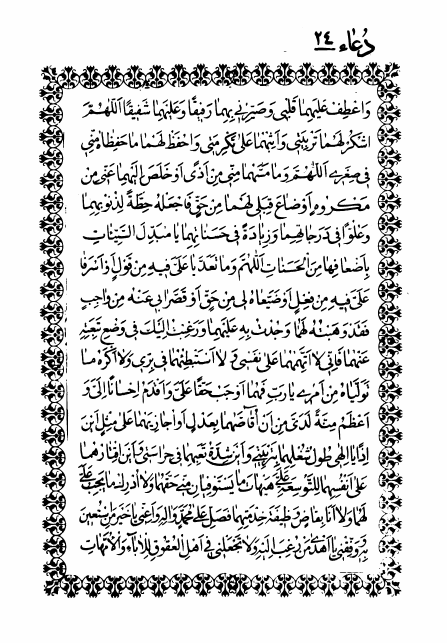 دُعاء ٢٤
وَاعْطِفْ عَلَيْهِما قَلْبى وَصَيِّرْنى بِهِما رَفيقًا وَعَلَيْهِما شَفيقًا اَللّهُمَّ
اشْكُرْ لَهُما تَرْبِيَتى وَاَثِبْهُما عَلى تَكْرِمَتى وَاحْفَظْ لَهُما ما حَفِظاهُ مِنّى
فى صِغَرى اَللّهُمَّ وَما مَسَّهُما مِنّى مِنْ اَذًى اَوْ خَلَصَ اِلَيْهِما عَنّى مِنْ
مَكْرُوهٍ اَوْ ضاعَ قِبَلى لَهُما مِنْ حَقٍّ فَاجْعَلْهُ حِطَّةً لِذُنُوبِهِما
وَعُلُوًّا فى دَرَجاتِهِما وَزِيادَةً فى حَسَناتِهِما يا مُبَدِّلَ السَّيِّئاتِ
بِاَضْعافِها مِنَ الْحَسَناتِ اَللّهُمَّ وَما تَعَدَّيا عَلَىَّ فيهِ مِنْ قَوْلٍ اَوْ اَسْرَفا
عَلَىَّ فيهِ مِنْ فِعْلٍ اَوْ ضَيَّعاهُ لى مِنْ حَقٍّ اَوْ قَصَّرا بى عَنْهُ مِنْ واجِبٍ
فَقَدْ وَهَبْتُهُ لَهُما وَجُدْتُ بِهِ عَلَيْهِما وَرَغِبْتُ اِلَيْكَ فى وَضْعِ تَبِعَتِهِ
عَنْهُما فَاِنّى لا اَتَّهِمُهُما عَلى نَفْسى وَلا اَسْتَبْطِئُهُما فى بِرّى وَلا اَكْرَهُ ما
تَوَلَّياهُ مِنْ اَمْرى يا رَبِّ فَهُما اَوْجَبُ حَقًّا عَلَىَّ وَاَقْدَمُ اِحْسانًا اِلَىَّ وَ
اَعْظَمُ مِنَّةً لَدَىَّ مِنْ اَنْ اُقاصَّهُما بِعَدْلٍ اَوْ اُجازِيَهُما عَلى مِثْلٍ اَيْنَ
اِذًا يا اِلهى طُولُ شُغْلِهِما بِتَرْبِيَتى وَاَيْنَ شِدَّةُ تَعَبِهِما فى حِراسَتى وَاَيْنَ اِقْتارُهُما
عَلى اَنْفُسِهِما لِلتَّوْسِعَةِ عَلَىَّ هَيْهاتَ ما يَسْتَوْفِيانِ مِنّى حَقَّهُما وَلا اُدْرِكُ ما يَجِبُ عَلَىَّ
لَهُما وَلا اَنَا بِقاضٍ وَظيفَةَ خِدْمَتِهِما فَصَلِّ عَلى مُحَمَّدٍ وَالِهِ وَاَعِنّى يا خَيْرَ مَنِ اسْتُعينَ
بِهِ وَوَفِّقْنى يا اَهْدى مَنْ رُغِبَ اِلَيْهِ وَلا تَجْعَلْنى فى اَهْلِ الْعُقُوقِ لِلْاباءِ وَالْاُمَّهاتِ